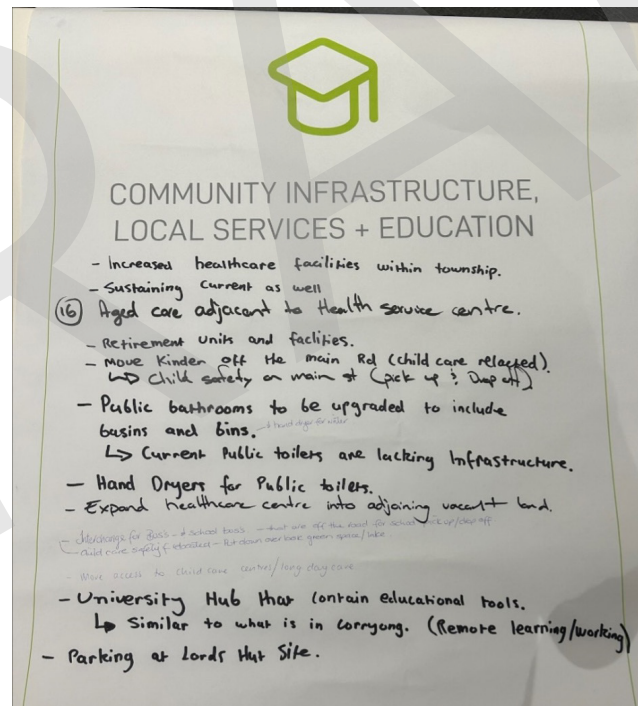 COMMUNITY INFRASTRUCTURE,
LOCAL SERVICES + EDUCATION
- Increased healthcare facilities within township.
- Sustaining Current as well
(16) Aged care adjacent to Health service centre.
- Retirement Units and faclities.
- Move Kinder off the main Rd (child care relacted).
↳ Child safety on main st (pick up & Drop off)
- Public bathrooms to be upgraded to include
basins and bins. & hand dryer for
↳ Current Public toilets are lacking Infrastructure.
- Hand Dryers for Public toilets.
- Expand healthcare centre into adjoining vacant land.
- Interchange for Buss - & school buss - that are off the road for school pick up/drop off.
- Child care safety & - Put down over back green space/
- More access to child care centres/long day care
- University Hub that contain educational tools.
↳ Similar to what is in corryong. (Remote learning/working)
- Parking at Lords Hut Site.